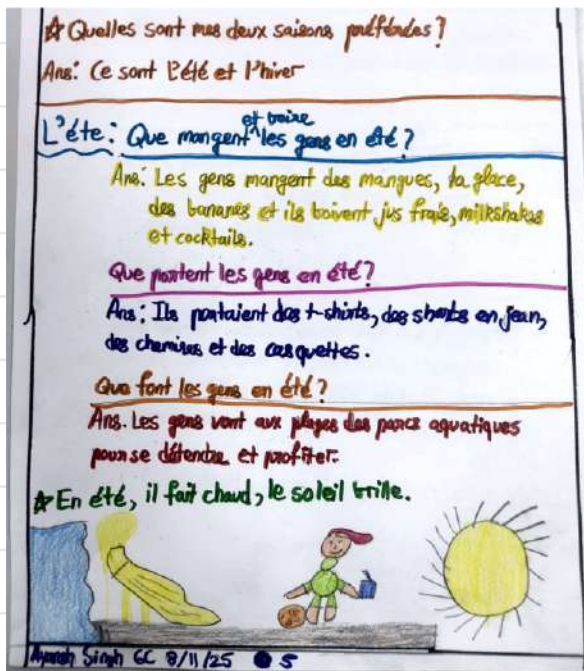 ☆ Quelles sont mes deux saisons préférées?
Ans: Ce sont l'été et l'hiver
L'éte: Que mangent et boire les gens en été?
Ans: Les gens mangent des mangues, la glace,
des bananes et ils boivent jus frais, milkshakes
et cocktails.
Que portent les gens en été?
Ans: Ils portaient des t-shirts, des shorts en jean,
des chemises et des casquettes.
Que font les gens en été?
Ans. Les gens vont aux plages des parcs aquatiques
pour se détendre et profiter.
☆ En été, il fait chaud, le soleil brille.
Singh 6C 8/11/25 5